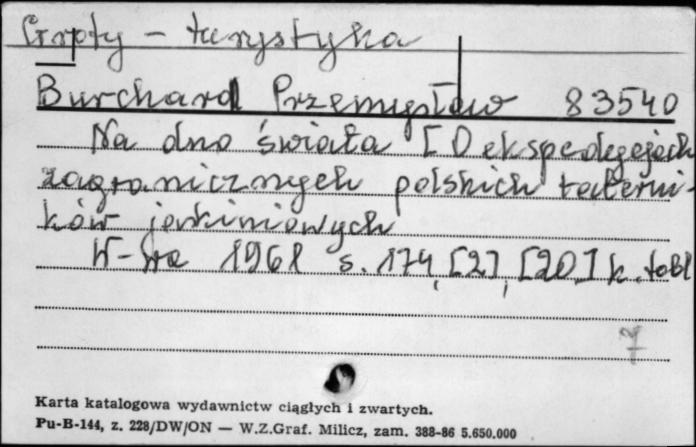 Groty - turystyka
Burchard Przemysław 83540
Na dno świata [O ekspedycjach
zagranicznych polskich taterni-
ków jaskiniowych
W-wa 1968 s. 174, [2], [20] k. tabl
Karta katalogowa wydawnictw ciągłych i zwartych.
Pu-B-144, z. 228/DW/ON — W.Z.Graf. Milicz, zam. 388-86 5.650.000